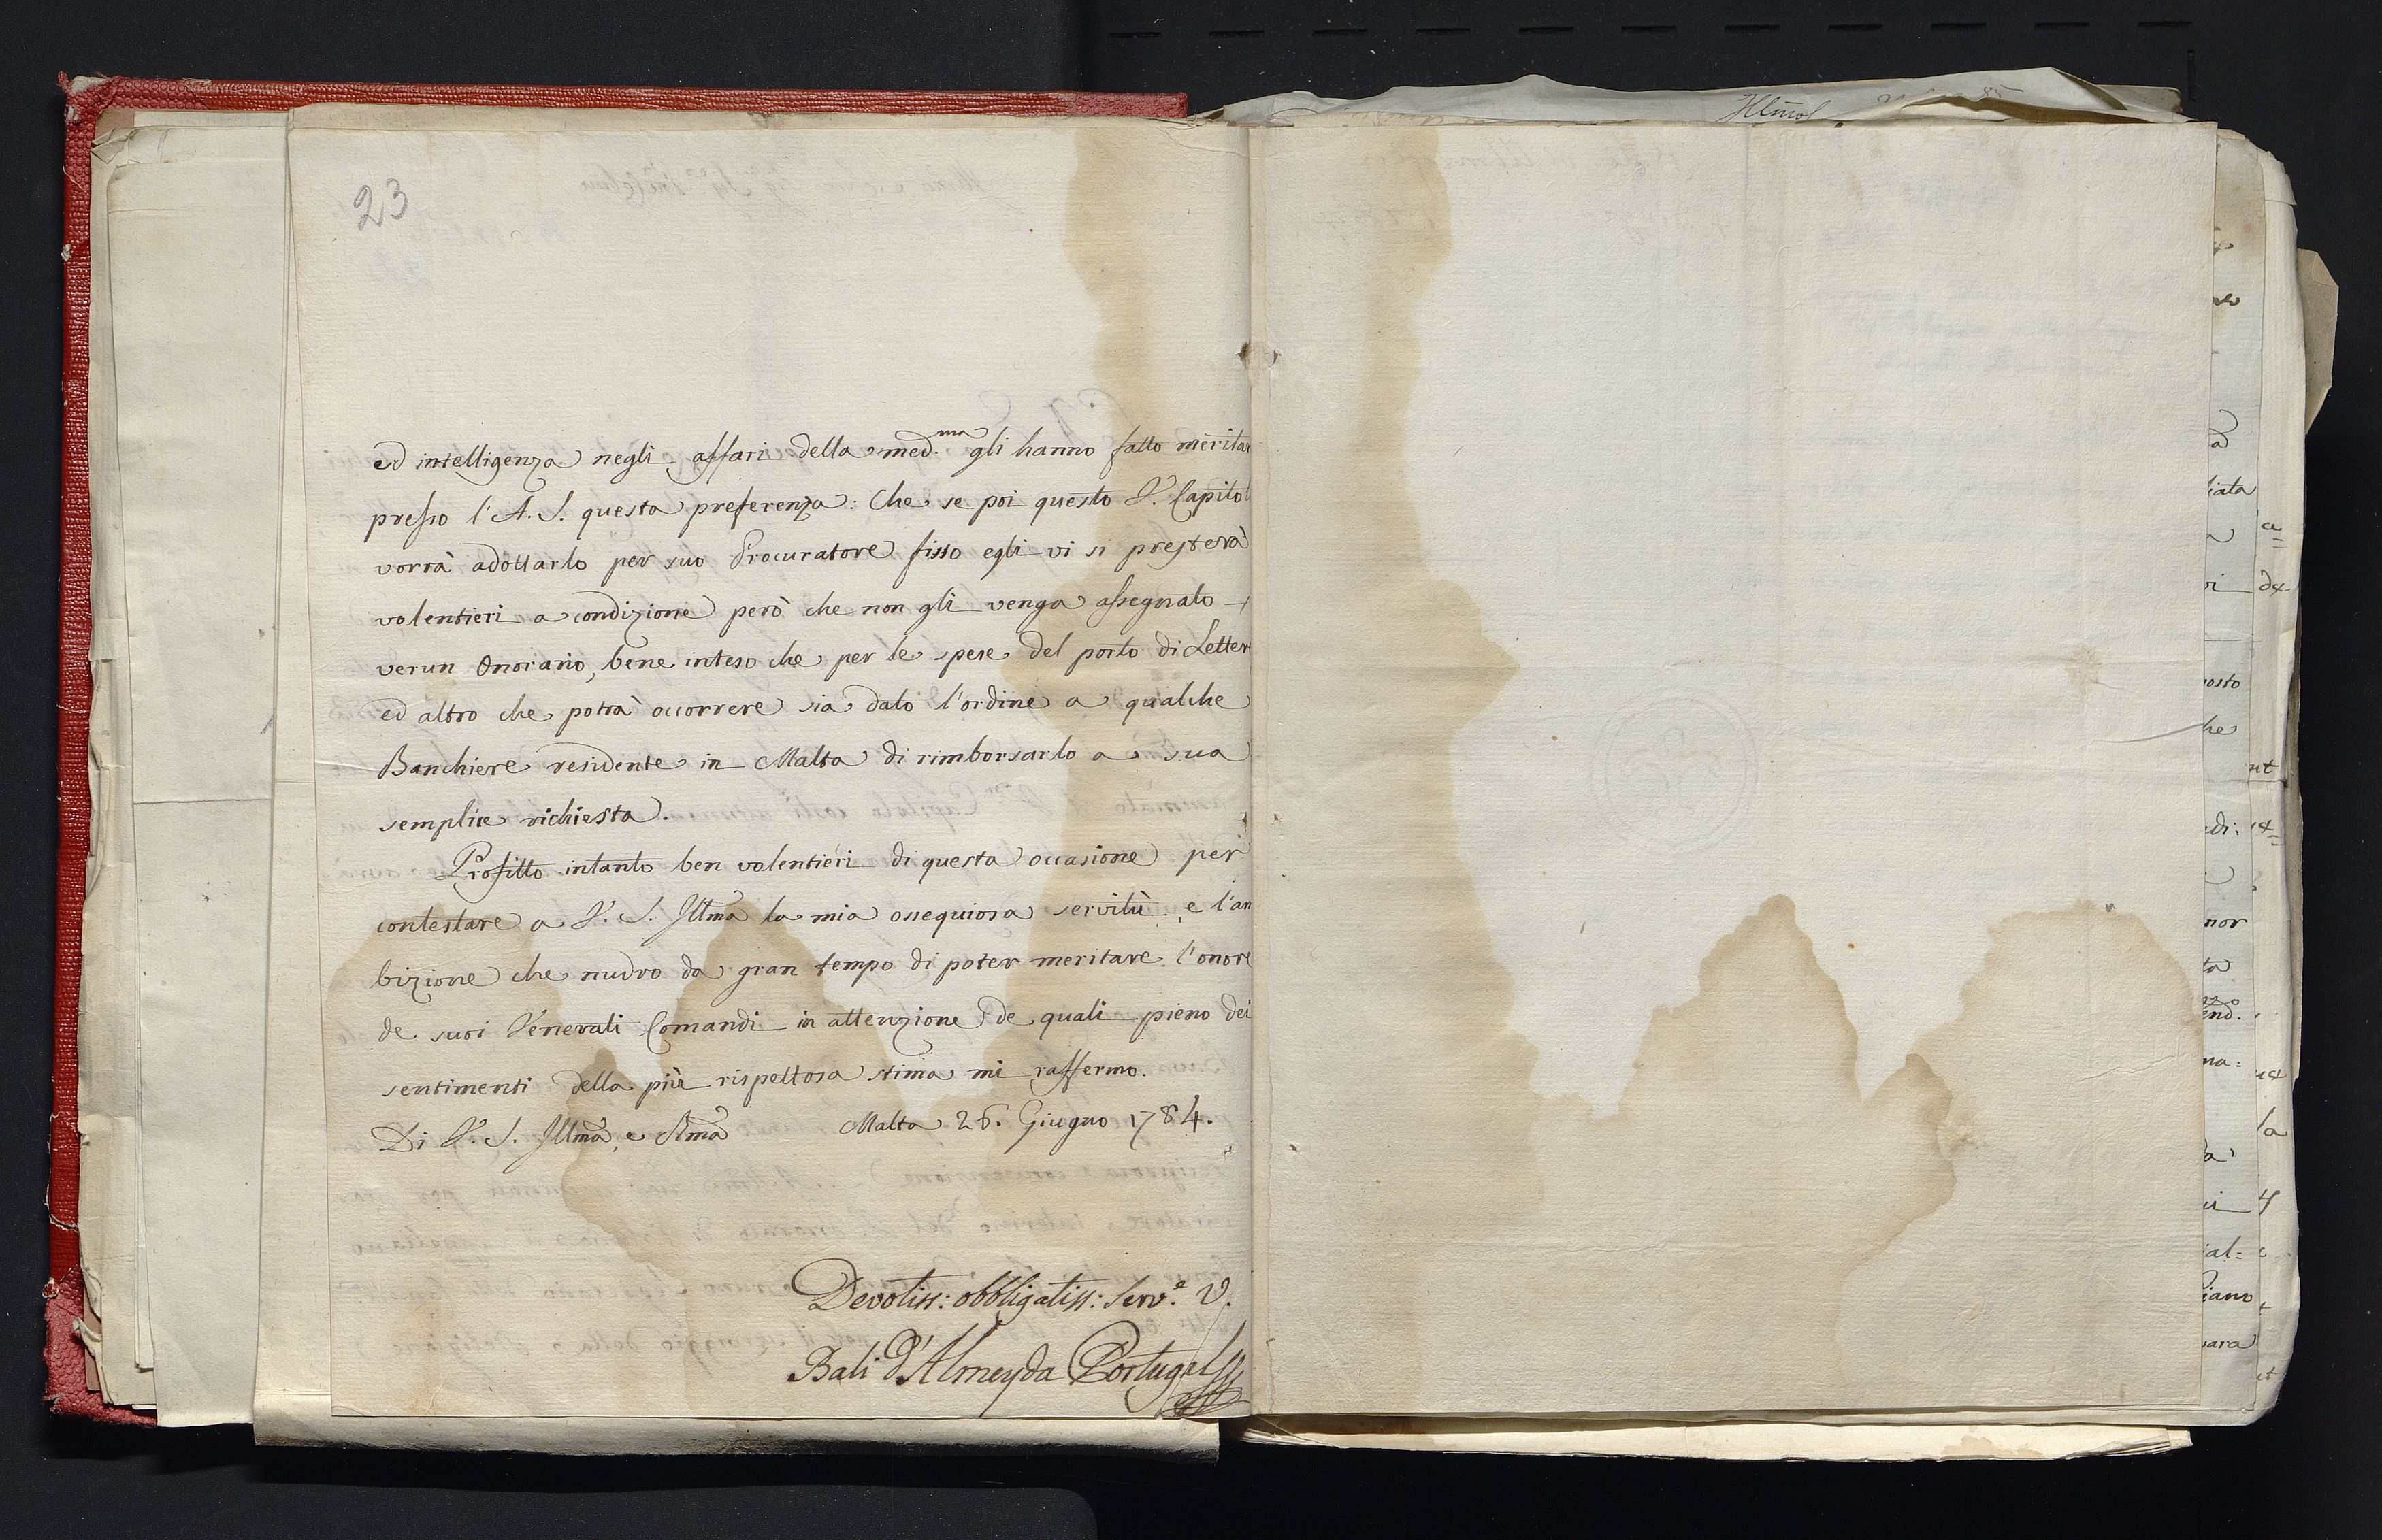 23
ed intelligenza negli affari della med.ma gli hanno fatto meritar
presso l'A. S. questa preferenza: Che se poi questo V. Capitol
vorrà adottarlo per suo Procuratore fisso egli vi si presterà
volentieri a condizione però che non gli venga assegnato
verun Onorario, bene inteso che per le spese del porto di Letter
ed altro che potrà occorrere sia dato l'ordine a qualche
Banchiere residente in Malta di rimborsarlo a sua
semplice richiesta.
Profitto intanto ben volentieri di questa occasione per
contestare a V. S. Illma la mia ossequiosa servitù, e l'am
bizione che nudro da gran tempo di poter meritare l'onore
de suoi Venerati Comandi in attenzione de quali pieno dei
sentimenti della più rispettosa stima mi raffermo.
Di V. S. Illma, e Rma Malta 26. Giugno 1784.
Devotiss: obbligatiss: Serv.e V.
Bali d'Almeyda Portugal